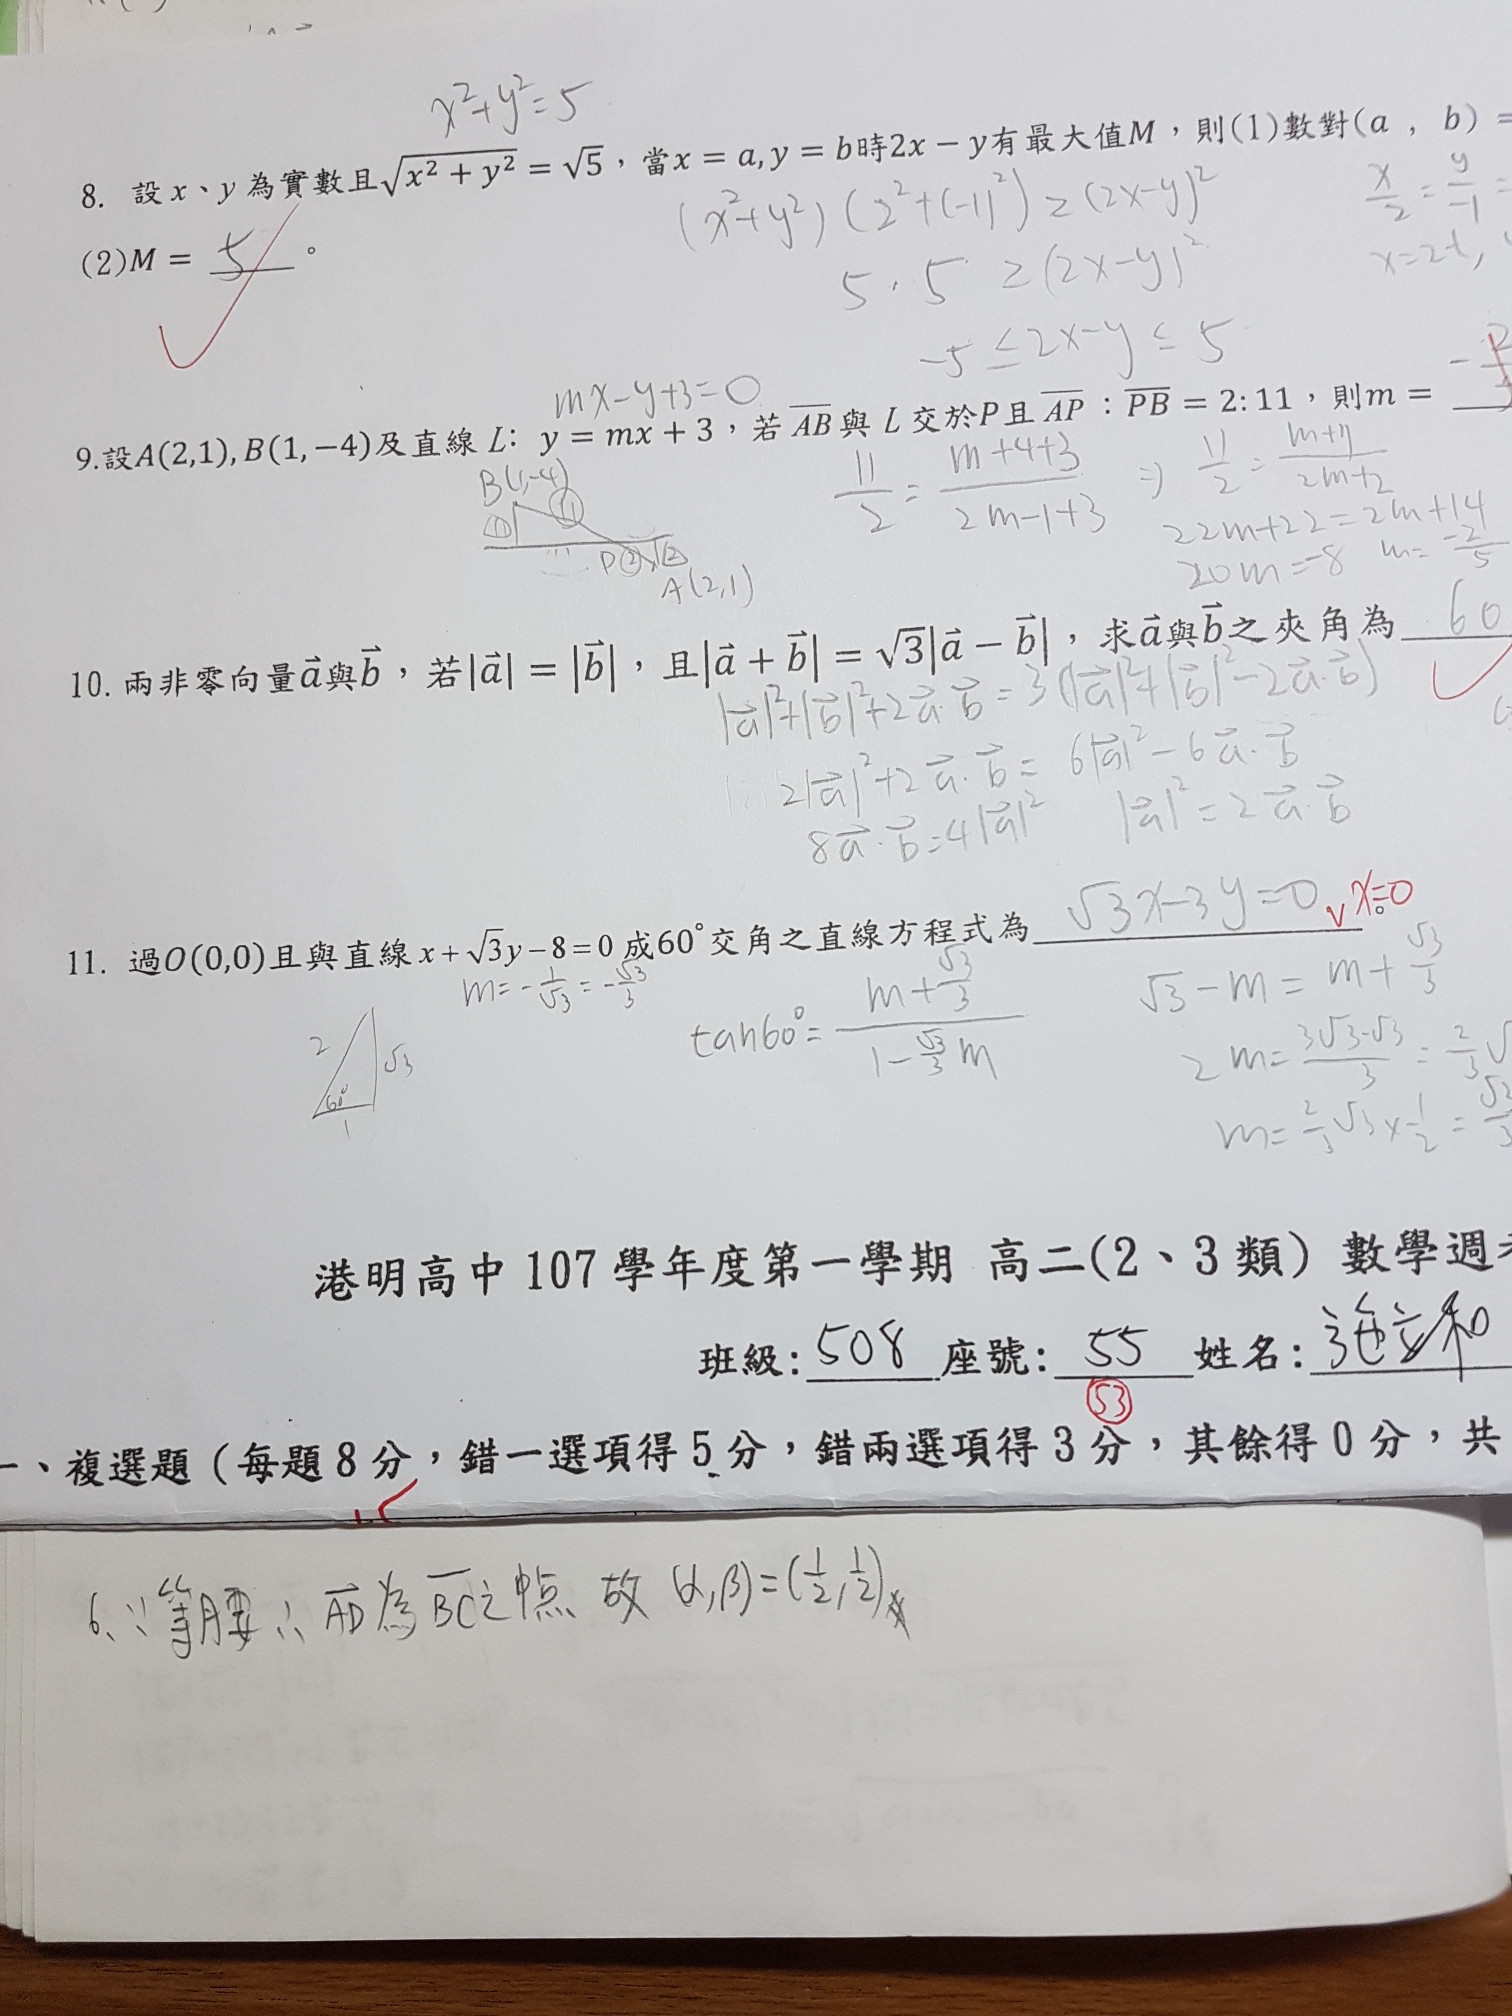 x²+y²=5
8. 設 x、y 為實數且√(x² + y²) = √5，當x = a, y = b時2x − y有最大值M，則(1)數對(a , b) =
(x²+y²)(2²+(-1)²) ≥ (2x-y)²
x/2 = y/-1 =
(2)M = 5 。
5·5 ≥ (2x-y)²
x=2t,
-5 ≤ 2x-y ≤ 5
mx-y+3=0
9.設A(2,1), B(1,−4)及直線 L: y = mx + 3，若 AB 與 L 交於P且 AP : PB = 2: 11，則m =
B(1,-4)
11/2 = (m+4+3)/(2m-1+3) ⇒ 11/2 = (m+7)/(2m+2)
22m+22=2m+14
20m=-8 m=-2/5
A(2,1)
10. 兩非零向量a⃗與b⃗，若|a⃗| = |b⃗|，且|a⃗ + b⃗| = √3|a⃗ − b⃗|，求a⃗與b⃗之夾角為 60
|a⃗|²+|b⃗|²+2a⃗·b⃗=3(|a⃗|²+|b⃗|²-2a⃗·b⃗)
2|a⃗|²+2a⃗·b⃗=6|a⃗|²-6a⃗·b⃗
8a⃗·b⃗=4|a⃗|² |a⃗|²=2a⃗·b⃗
11. 過O(0,0)且與直線x+√3y−8=0成60°交角之直線方程式為 √3x-3y=0 x=0 。
m=-1/√3=-√3/3
tan60°=(m+√3/3)/(1-√3/3 m)
√3-m=m+√3/3
2 √3 60° 1
2m=(3√3-√3)/3=2/3√
m=2/3√3×1/2=√3/3
港明高中 107 學年度第一學期 高二(2、3 類) 數學週
班級: 508 座號: 55 姓名: 施立和
53
一、複選題（每題 8 分，錯一選項得 5 分，錯兩選項得 3 分，其餘得 0 分，共
6、∵等腰 ∴AD為BC之中點 故 (α,β)=(1/2,1/2)